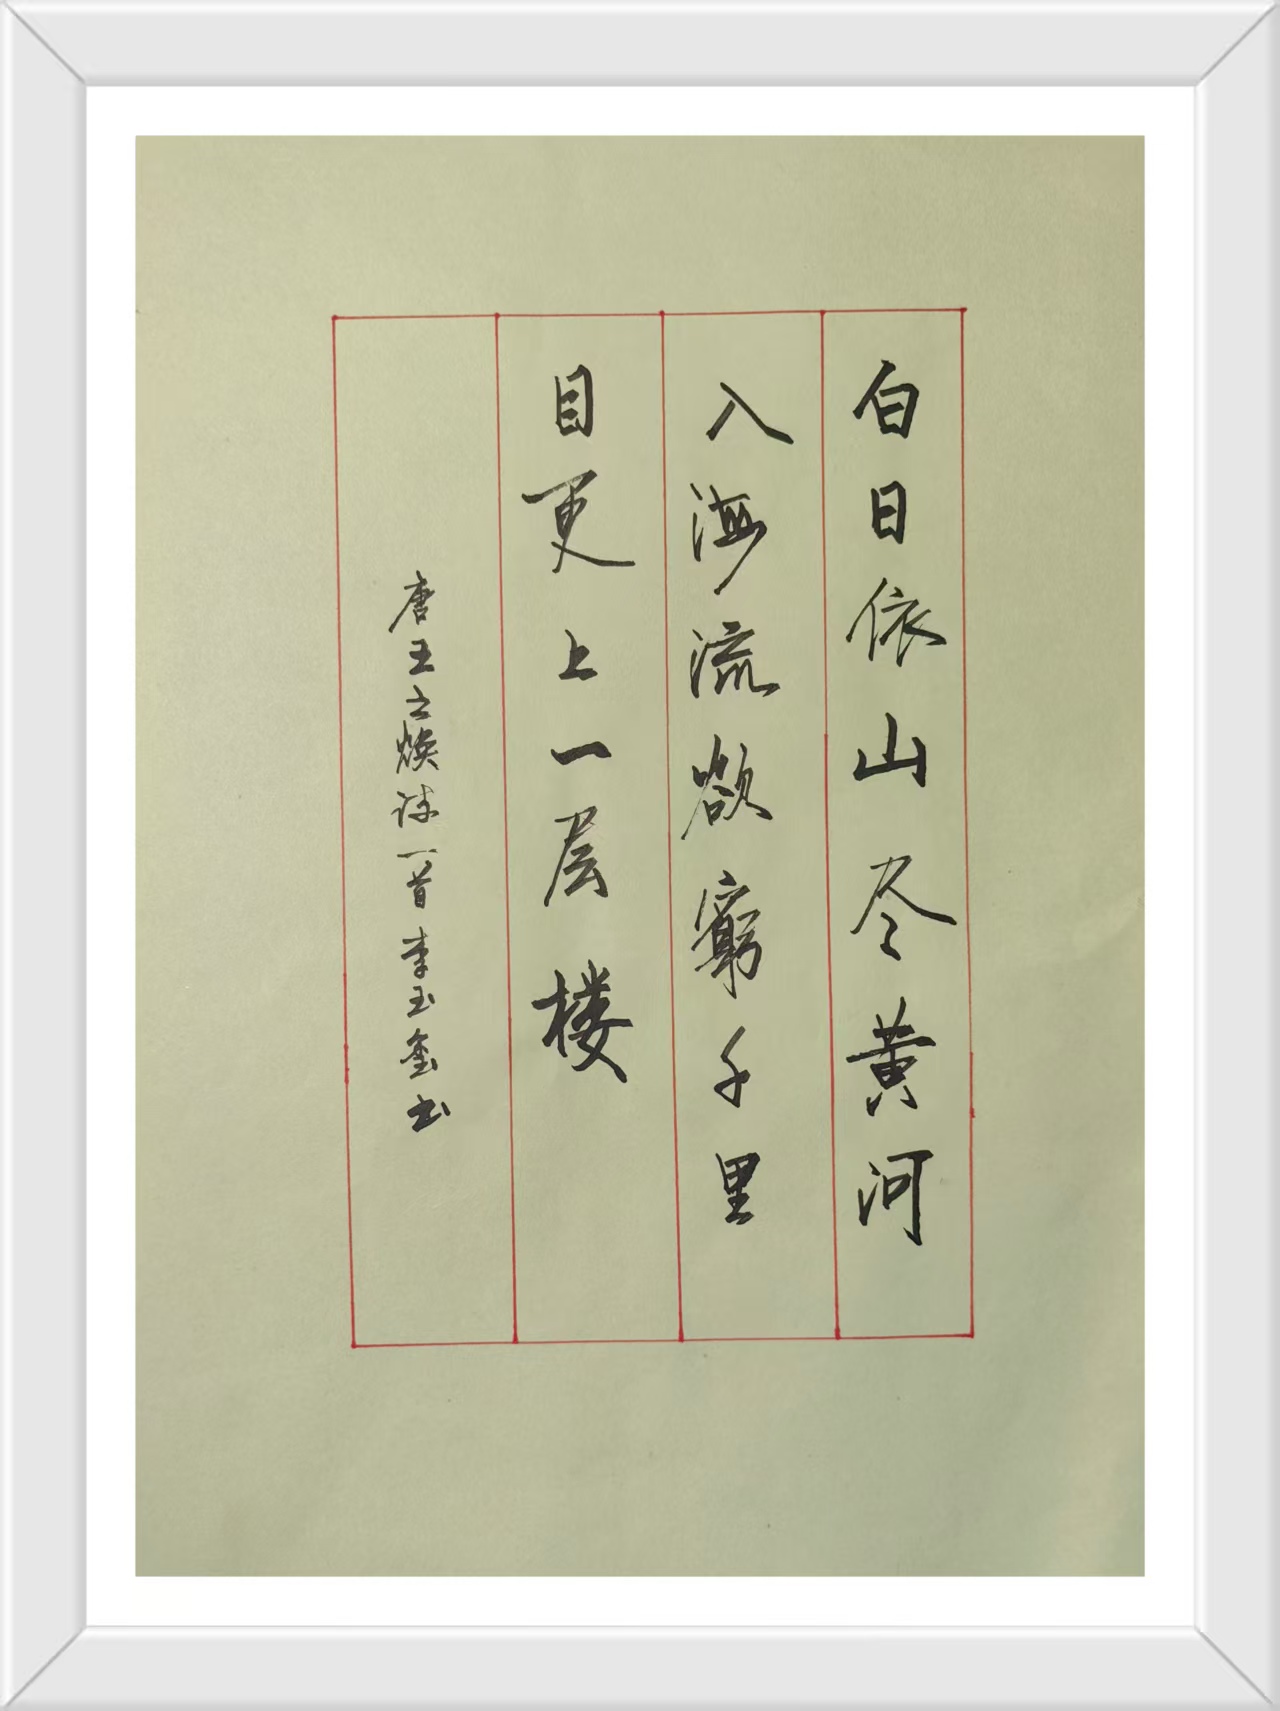 白日依山尽黄河
入海流欲窮千里
目更上一层楼
唐王之焕诗一首李玉玺书